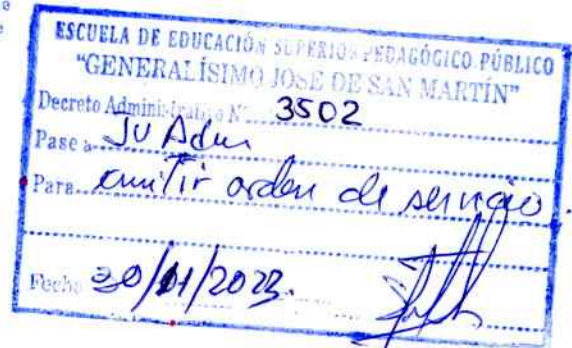 ESCUELA DE EDUCACIÓN SUPERIOR PEDAGÓGICO PÚBLICO
"GENERALÍSIMO JOSE DE SAN MARTÍN"
Decreto Administrativo N° 3502
Pase a JU Adm
Para emitir orden de servicio.
Fecha 30/01/2023.